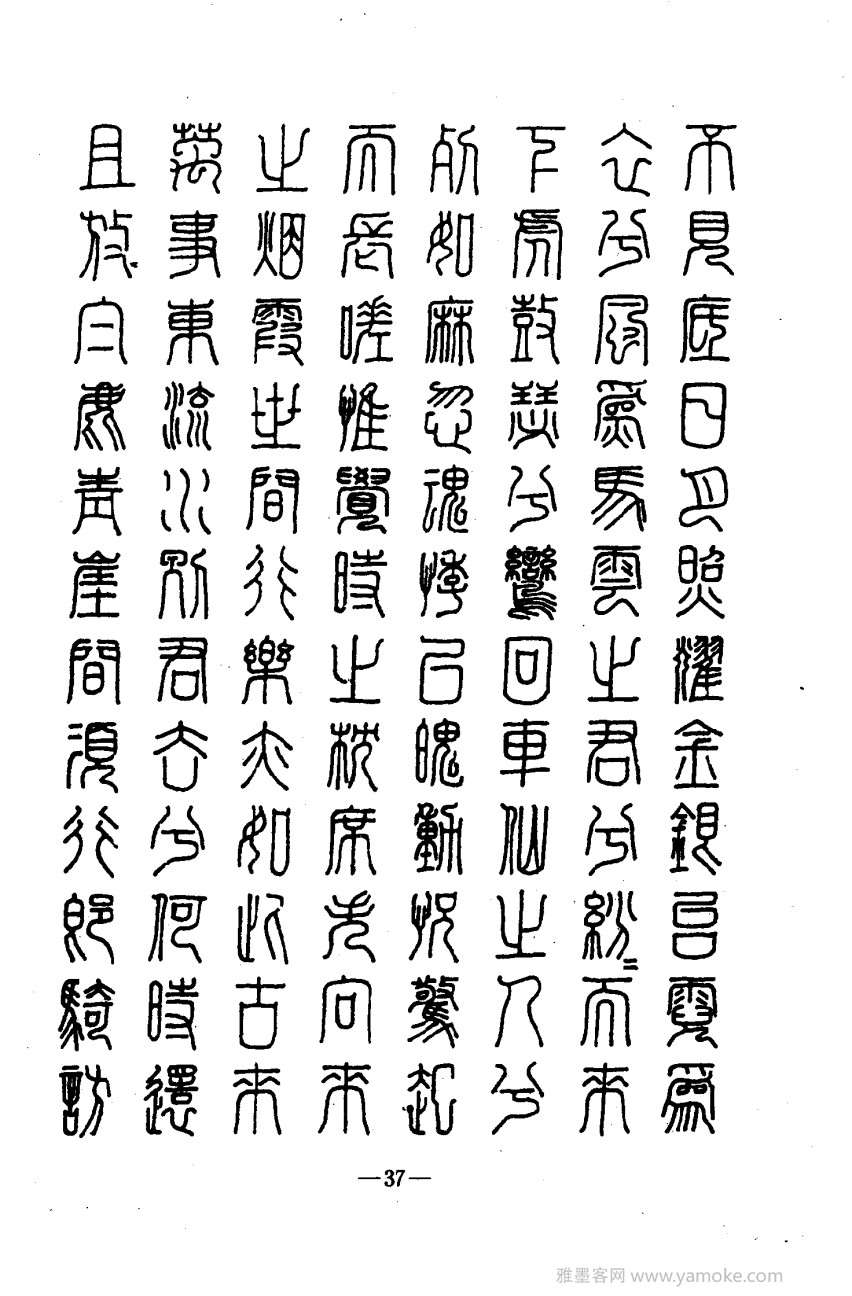 不見底日月照耀金銀台霓爲
衣兮風爲馬雲之君兮紛〻而來
下虎鼓瑟兮鸞回車仙之人兮
列如麻忽魂悸以魄動怳驚起
而長嗟惟覺時之枕席失向來
之烟霞世間行樂亦如此古來
萬事東流水別君去兮何時還
且放白鹿青崖間須行即騎訪
—37—
雅墨客网 www.yamoke.com